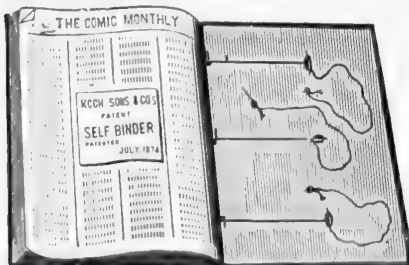 THE COMIC MONTHLY
KOCH SONS & CO'S
PATENT
SELF BINDER
PATENTED
JULY 1874